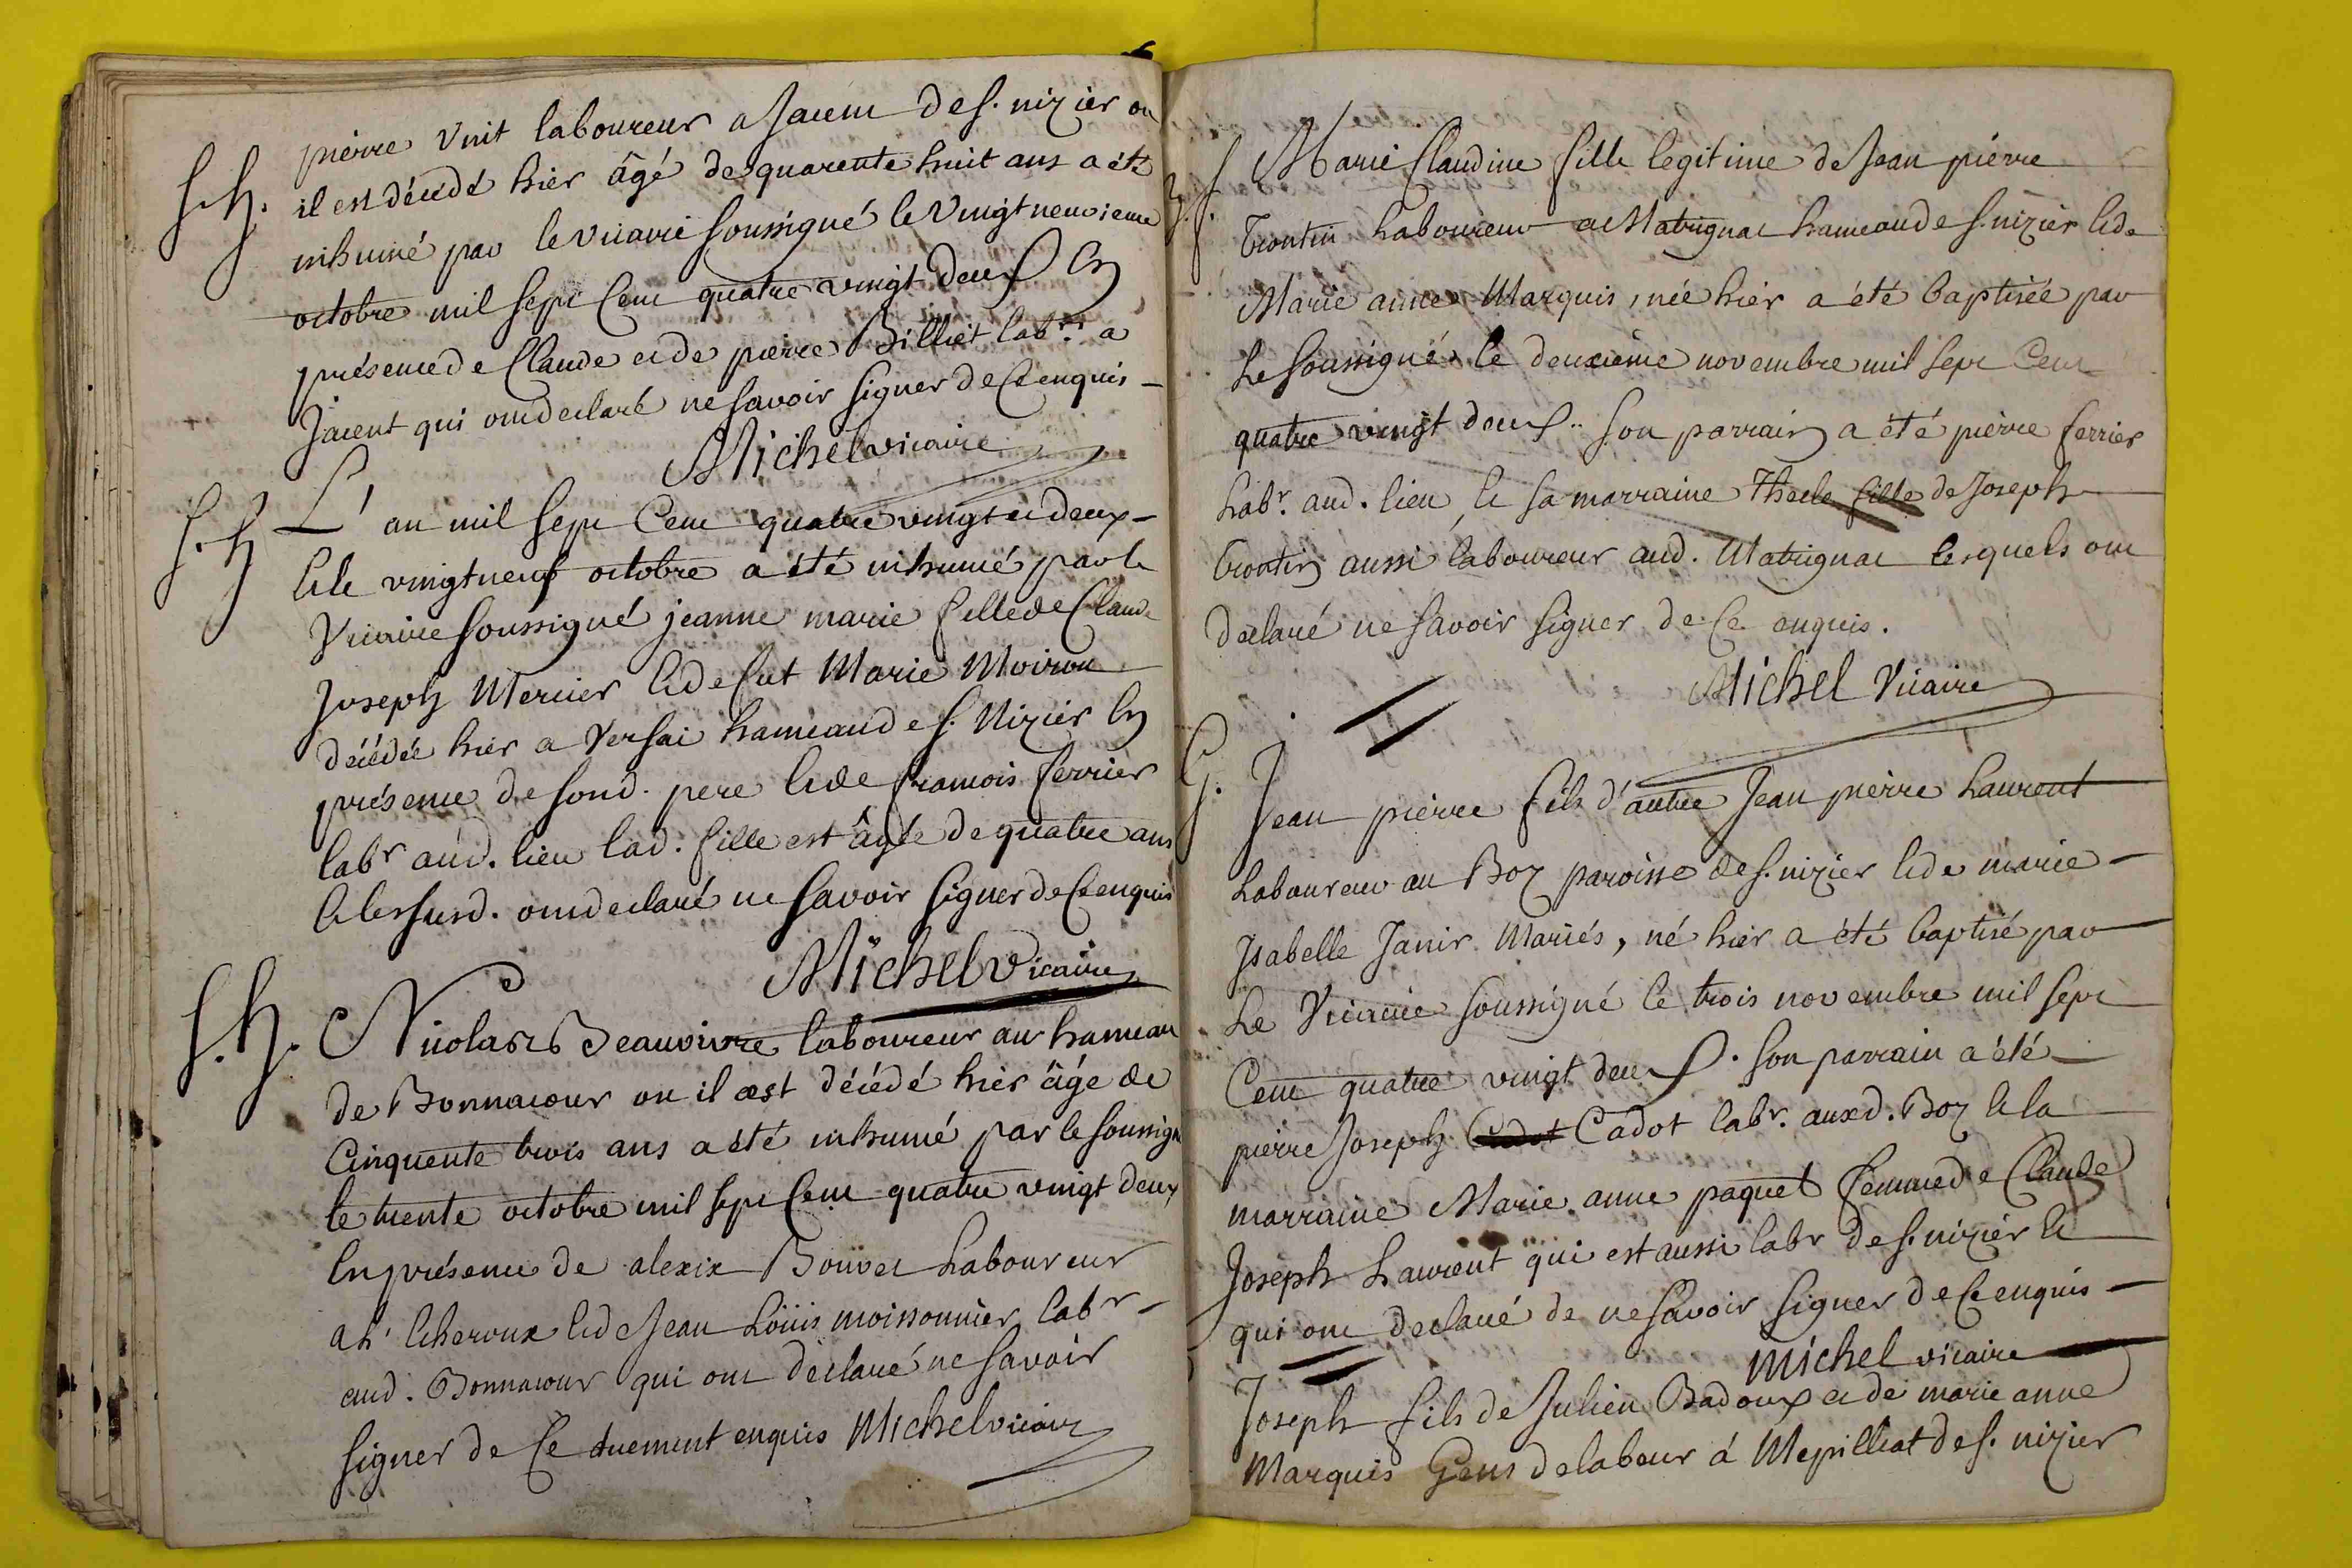 S. h. pierre Vuit laboureur a Jacent de S. nizier ou
il est décedé hier âgé de quarente huit ans a été
inhumé par le vicaire soussigné le vingt neuvieme
octobre mil sept cent quatre vingt deux En
présence de Claude et de pierre Billiet labrs. a
Jacent qui ont declaré ne savoir signer de ce enquis
Michel vicaire
S. h L'an mil sept cent quatre vingt et deux
et le vingt neuf octobre a été inhumé par le
Vicaire soussigné jeanne marie fille de Claude
Joseph Mercier et de fut Marie Moiroux
décédée hier a Versai hameau de S. Nizier En
présence de sond. pere et de francois ferrier
labr aud. lieu lad. fille est âgée de quatre ans
et les susd. ont declaré ne savoir signer de ce enquis
Michel Vicaire
S. h. Nicolas Beauvivre laboureur au hameau
de Bonnacour ou il est décédé hier âgé de
Cinquente trois ans a été inhumé par le soussigné
le trente octobre mil sept cent quatre vingt deux
En présence de alexix Bouvet Laboureur
a L'Etheroux et de Jean Loüis moissonnier labr
aud. Bonnacour qui ont declaré ne savoir
signer de ce duement enquis Michel vicaire
Marie Claudine fille legitime de Jean pierre
trontin Laboureur a Matrignat hameau de S. nizier et de
Marie anne Marquis, née hier a été baptisée par
Le soussigné le deuxième novembre mil sept cent
quatre vingt deux.. son parrain a été pierre ferrier
Labr. aud. lieu, et sa marraine Thecle fille de Joseph
trontin aussi laboureur aud. Matrignat lesquels ont
declaré ne savoir signer de ce enquis.
Michel Vicaire
G. Jean pierre fils d'autre Jean pierre Laurent
Laboureur au Boz paroisse de S. nizier et de marie
Isabelle Janir Mariés, né hier a été baptisé par
Le Vicaire soussigné le trois novembre mil sept
Cent quatre vingt deux. son parrain a été
pierre Joseph Cadot Cadot labr. auxd. Boz et la
marraine Marie anne paquet femme de Claude
Joseph Laurent qui est aussi labr de S. nizier et
qui ont declaré de ne savoir signer de ce enquis
Michel vicaire
Joseph fils de Julien Badoux et de marie anne
Marquis Gens de labeur á Mepilliat de S. nizier